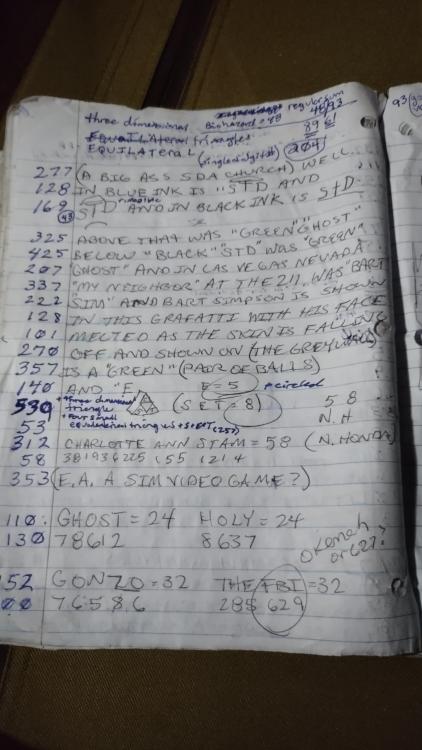 three dimensional Biohazard = 48 regularsum
46/93
Equilateral triangles 89 61
EQUILATERAL (single digits) 204
277 (A BIG ASS SDA CHURCH) WELL
128 IN BLUE INK IS "STD AND
169 STD AND IN BLACK INK IS STD.
43
325 ABOVE THAT WAS "GREEN GHOST"
425 BELOW "BLACK" STD" WAS "GREEN
207 GHOST" AND IN LAS VEGAS NEVADA
337 "MY NEIGHBOR" AT THE 211 WAS "BART
222 SIM" AND BART SIMPSON IS SHOWN
128 IN THIS GRAFATTI WITH HIS FACE
101 MELTED AS THE SKIN IS FALLING
270 OFF AND SHOWN ON (THE GREY WALL)
357 IS A "GREEN" (PAIR OF BALLS)
140 AND "E E=5 circled
530 three dimensional triangle (SET=8) 5 8
53 Four small N.H
equilateral triangles + SET (257)
312 CHARLOTTE ANN STAM = 58 (N. HONDA)
58 381936225 155 1214
353 (E.A. A SIM VIDEO GAME?)
110: GHOST = 24 HOLY = 24
130 78612 8637
Okemah or 627?
52 GONZO = 32 THE FBI = 32
00 76586 285 629
93